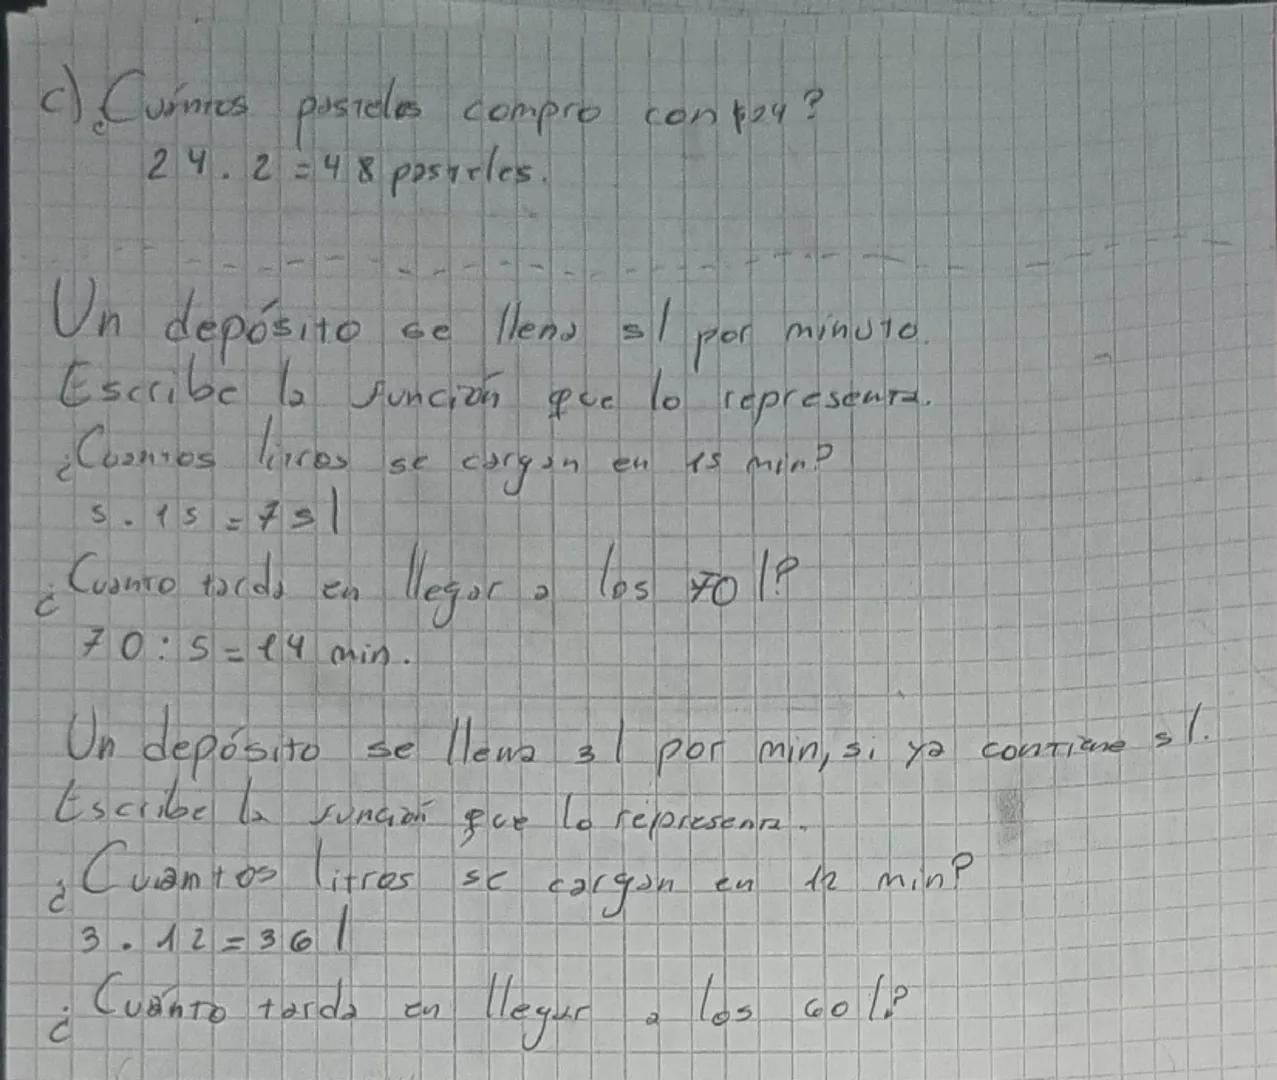 c) ¿Cuántos pasteles compro con $24?
24 . 2 = 48 pasteles.
Un depósito se llena 5l por minuto.
Escribe la función que lo representa.
¿Cuantos litros se cargan en 15 min?
5 . 15 = 75 l
¿Cuanto tarda en llegar a los 70 l?
70 : 5 = 14 min.
Un depósito se llena 3 l por min, si ya contiene 5 l.
Escribe la función que lo representa.
¿Cuantos litros se cargan en 12 min?
3 . 12 = 36 l
¿Cuánto tarda en llegar a los 60 l?